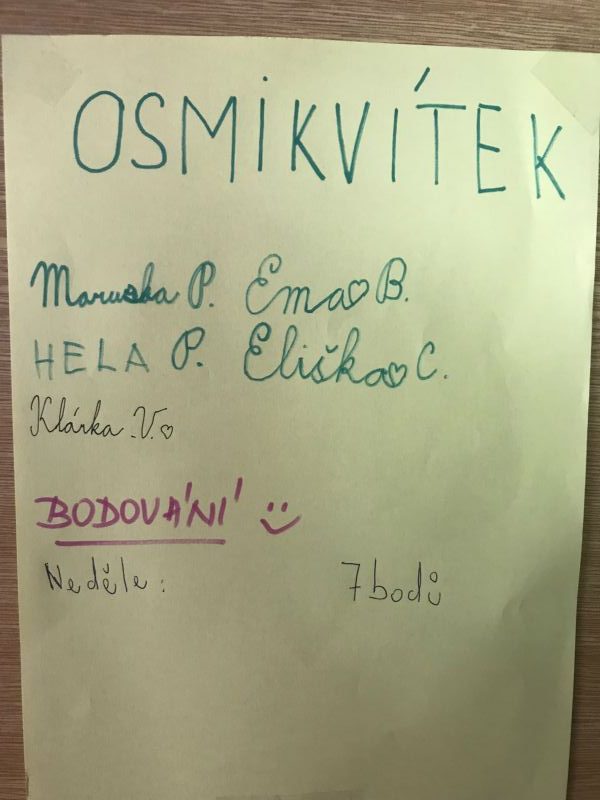 OSMIKVÍTEK
Maruska P. Ema B.
HELA P. Eliška C.
Klárka V.
BODOVÁNÍ
Neděle: 7 bodů